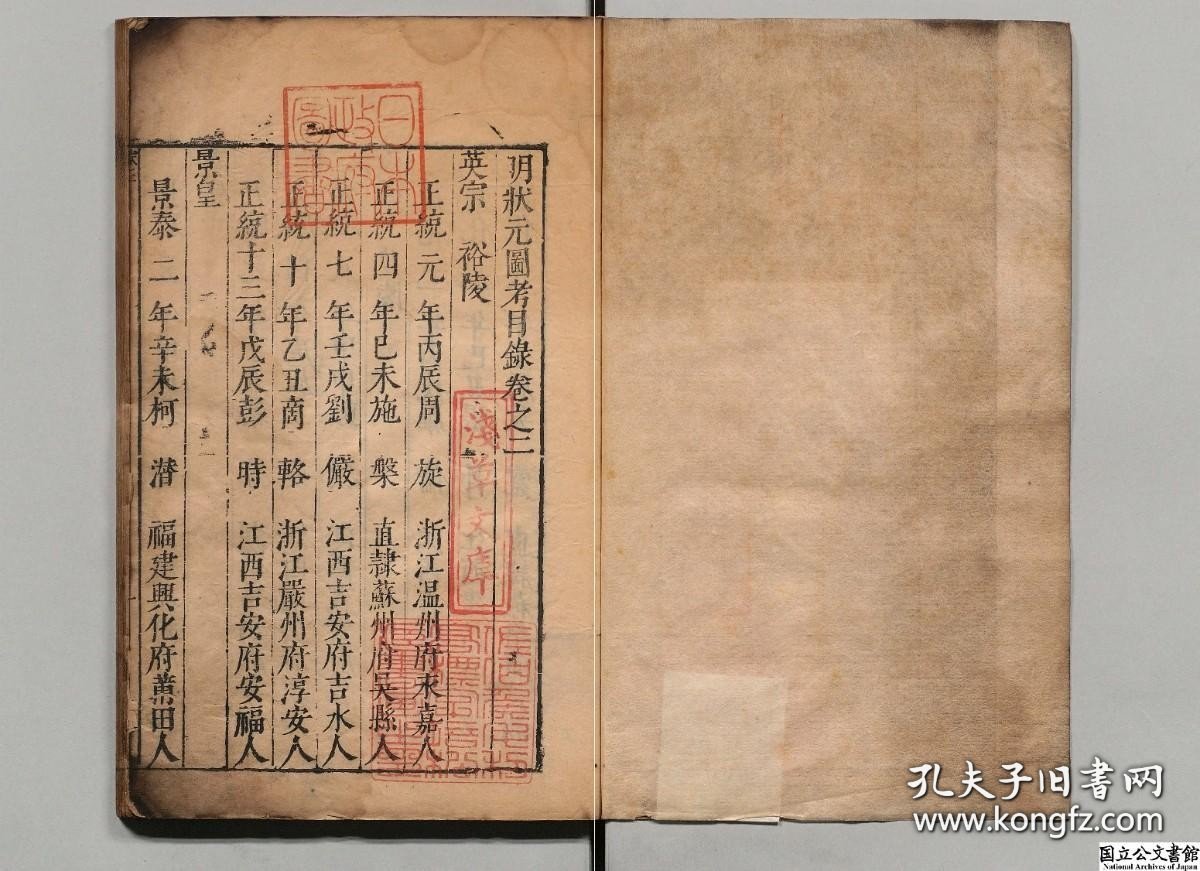 明狀元圖考目錄卷之二
英宗 裕陵
正統元年丙辰周旋 浙江温州府永嘉人
正統四年己未施槃 直隷蘇州府吳縣人
正統七年壬戌劉儼 江西吉安府吉水人
正統十年乙丑商輅 浙江嚴州府淳安人
正統十三年戊辰彭時 江西吉安府安福人
景皇
景泰二年辛未柯潜 福建興化府莆田人
日本
政府
圖書
淺草文庫
孔夫子旧书网
www.kongfz.com
国立公文書館
National Archives of Japan